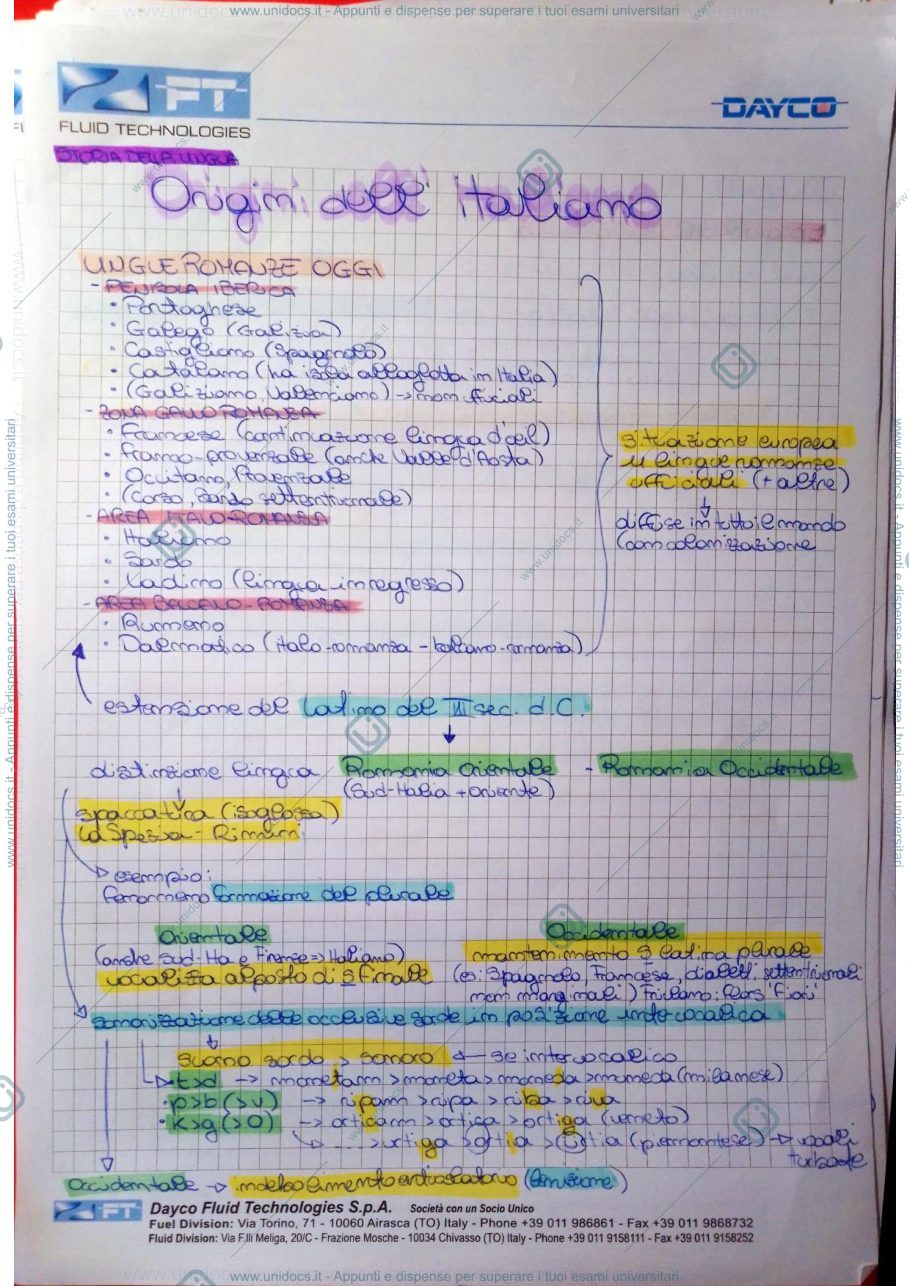 www.unidocs.it - Appunti e dispense per superare i tuoi esami universitari
FT
FLUID TECHNOLOGIES
DAYCO
STORIA DELLA LINGUA
Origini dell'italiano
LINGUE ROMANZE OGGI
- PENISOLA IBERICA
• Portoghese
• Galego (Galizia)
• Castigliano (Spagnolo)
• Catalano (ha isola alloglotta in Italia)
• (Galiziano, Valenciano) → non ufficiali
- ZONA GALLO ROMANZA
• Francese (continuazione lingua d'oeil)
• Franco-provenzale (anche Valle d'Aosta)
• Occitano, Provenzale
• (Corso, Sardo settentrionale)
- AREA ITALO-ROMANZA
• Italiano
• Sardo
• Ladino (lingua in regresso)
- AREA BALCANO-ROMANZA
• Rumeno
• Dalmatico (italo-romanza - balcano-romanza)
situazione europea
11 lingue romanze
ufficiali (+ altre)
↓
diffuse in tutto il mondo
con colonizzazione
estensione del Latino del III sec. d.C.
↓
distinzione lingua Romania Orientale - Romania Occidentale
(Sud-Italia + Oriente)
spaccatura (isoglossa)
La Spezia - Rimini
esempio:
fenomeno formazione del plurale
Orientale
(anche Sud-Ita e Firenze => Italiano)
vocalizza al posto di s finale
Occidentale
mantenimento s latina plurale
(es: Spagnolo, Francese, dialetti settentrionali
non marginali) Friulano: flors 'fiori'
sonorizzazione delle occlusive sorde in posizione intervocalica
↓
suono sordo > sonoro ← se intervocalico
• t>d → monetam > moneta > moneda > muneda (milanese)
• p>b (>v) → ripam > ripa > riba > riva
• k>g (>0) → orticam > ortica > ortiga (veneto)
↳ ... > urtiga > ortia > ürtia (piemontese) → vocali
turbate
Occidentale → indebolimento articolatorio (lenizione)
FT
Dayco Fluid Technologies S.p.A. Società con un Socio Unico
Fuel Division: Via Torino, 71 - 10060 Airasca (TO) Italy - Phone +39 011 986861 - Fax +39 011 9868732
Fluid Division: Via F.lli Meliga, 20/C - Frazione Mosche - 10034 Chivasso (TO) Italy - Phone +39 011 9158111 - Fax +39 011 9158252
www.unidocs.it - Appunti e dispense per superare i tuoi esami universitari